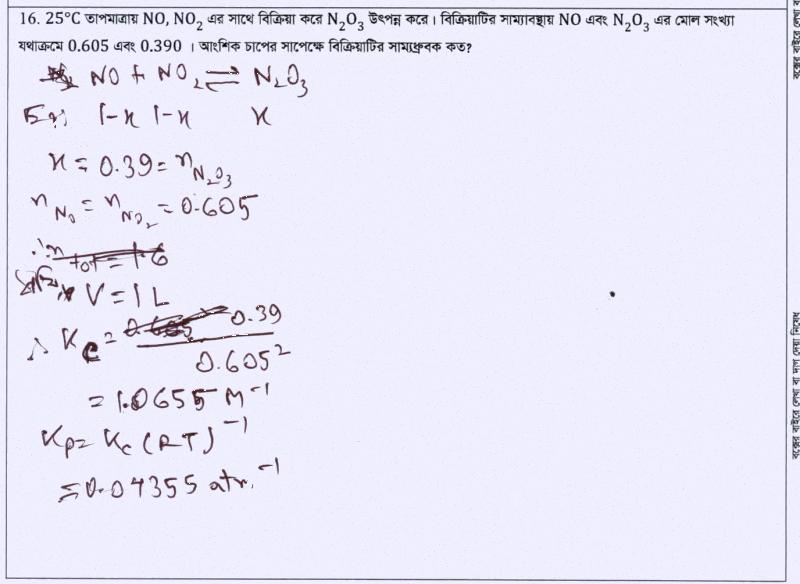 16. 25°C তাপমাত্রায় NO, NO₂ এর সাথে বিক্রিয়া করে N₂O₃ উৎপন্ন করে। বিক্রিয়াটির সাম্যাবস্থায় NO এবং N₂O₃ এর মোল সংখ্যা
যথাক্রমে 0.605 এবং 0.390 । আংশিক চাপের সাপেক্ষে বিক্রিয়াটির সাম্যধ্রুবক কত?
NO + NO₂ ⇌ N₂O₃
1-x 1-x x
x = 0.39 = n N₂O₃
n NO = n NO₂ = 0.605
∴ n tot = 1.6
V = 1 L
∴ Kc = 0.605 0.39
0.605²
= 1.0655 M⁻¹
Kp = Kc (RT)⁻¹
= 0.04355 atm⁻¹
বক্সের বাইরে লেখা বা দাগ দেয়া নিষেধ